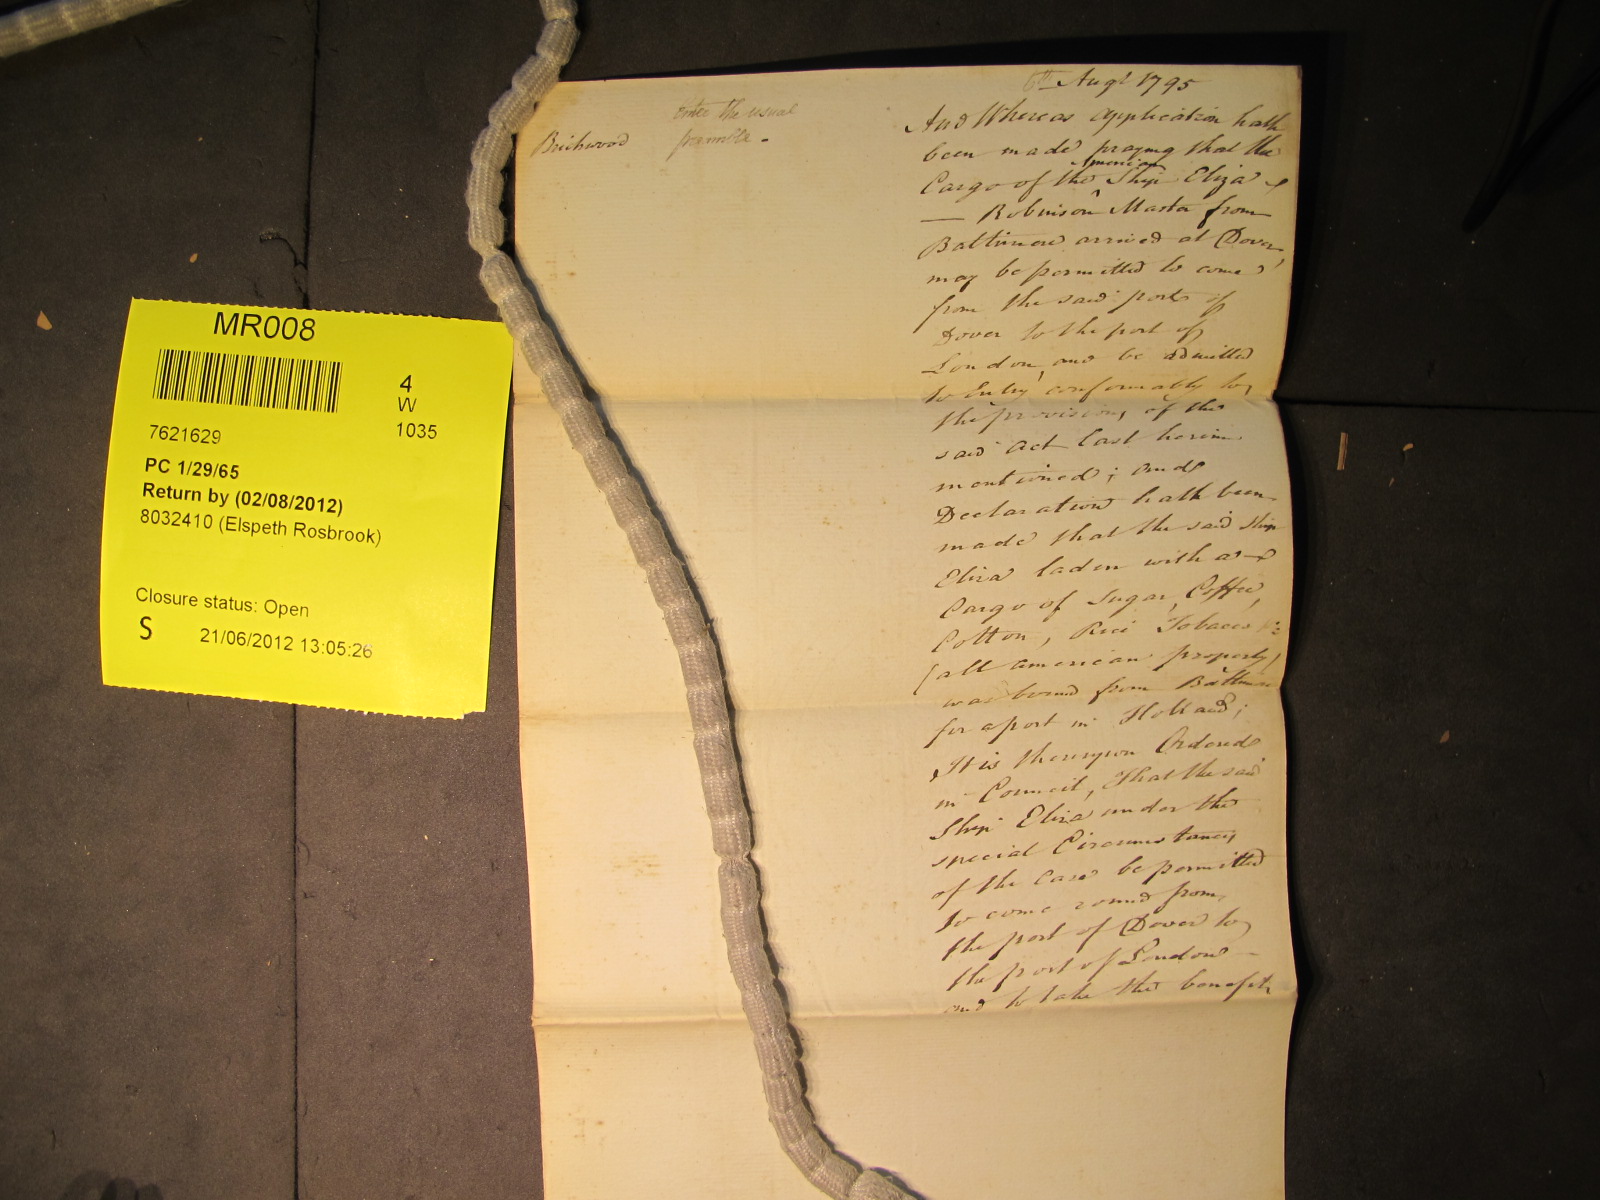 MR008
4
W
1035
7621629
PC 1/29/65
Return by (02/08/2012)
8032410 (Elspeth Rosbrook)
Closure status: Open
S 21/06/2012 13:05:26
enter the usual
preamble.
6th Augt 1795
And Whereas application hath
been made praying that the
American
Cargo of the Ship Eliza
— Robinson Master from
Baltimore arrived at Dover,
may be permitted to come
from the said port of
Dover to the port of
London, and be admitted
to Entry conformably to
the provisions of the
said Act last herein
mentioned; and
Declaration hath been
made that the said Ship
Eliza laden with a
Cargo of Sugar, Coffee,
Cotton, Rice Tobacco
(all American property)
was bound from Baltimore
for a port in Holland;
It is thereupon Ordered
in Council, That the said
Ship Eliza under the
special Circumstances
of the Case be permitted
to come round from
the port of Dover to
the port of London
and to take the benefit